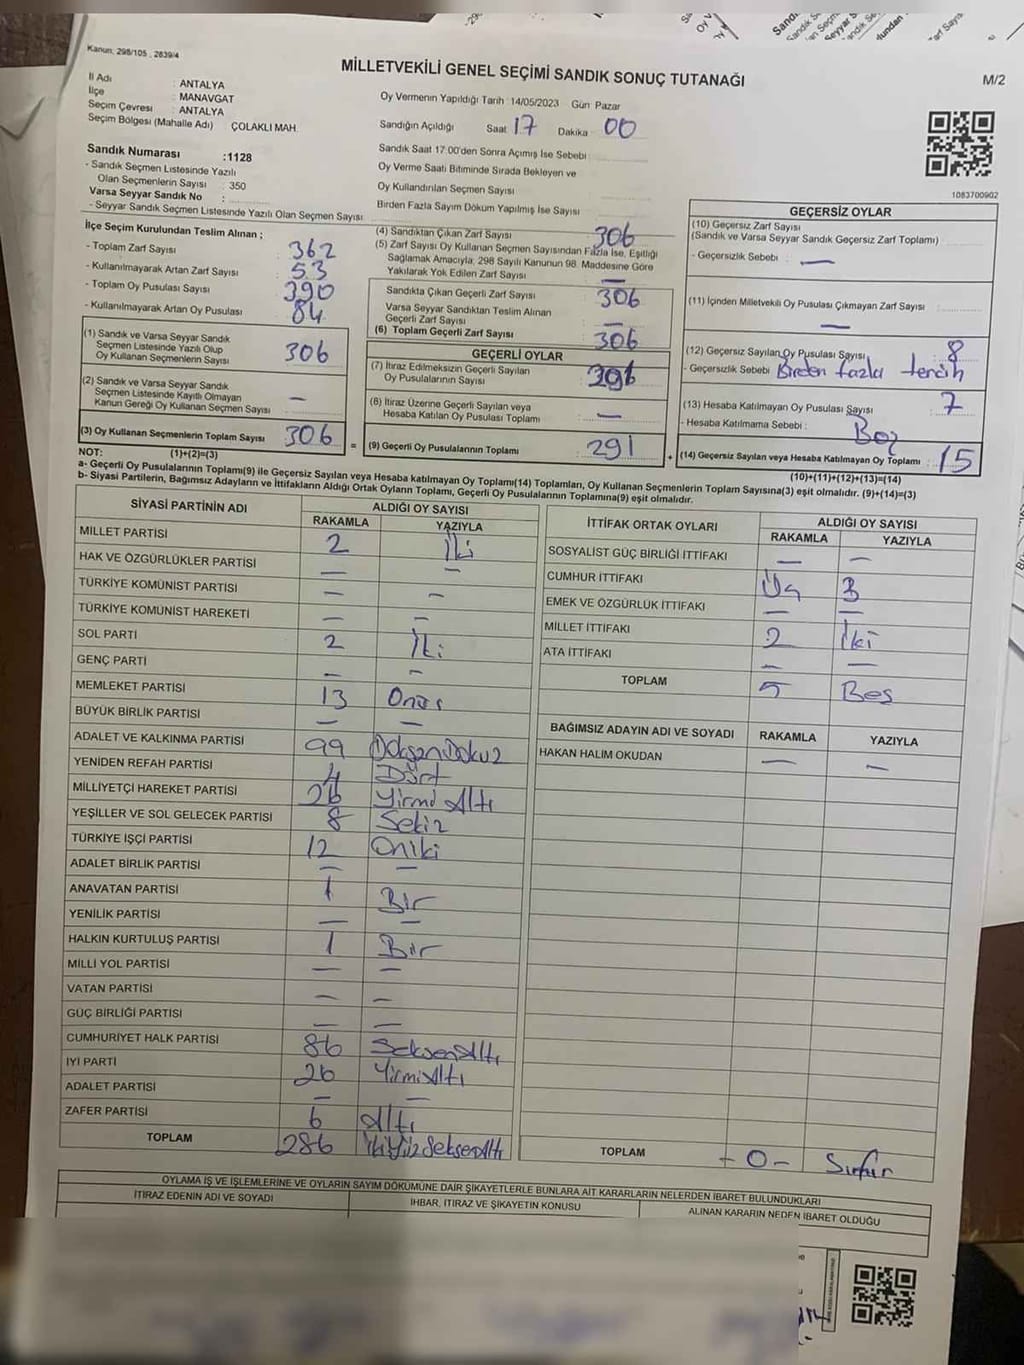 Kanun; 298/105 , 2839/4
MİLLETVEKİLİ GENEL SEÇİMİ SANDIK SONUÇ TUTANAĞI
M/2
İl Adı : ANTALYA
İlçe : MANAVGAT
Seçim Çevresi : ANTALYA
Seçim Bölgesi (Mahalle Adı) ÇOLAKLI MAH.
Oy Vermenin Yapıldığı Tarih :14/05/2023 Gün Pazar
Sandığın Açıldığı Saat 17 Dakika 00
Sandık Numarası :1128
- Sandık Seçmen Listesinde Yazılı
Olan Seçmenlerin Sayısı : 350
Varsa Seyyar Sandık No :
- Seyyar Sandık Seçmen Listesinde Yazılı Olan Seçmen Sayısı
Sandık Saat 17:00'den Sonra Açmış İse Sebebi
Oy Verme Saati Bitiminde Sırada Bekleyen ve
Oy Kullandırılan Seçmen Sayısı
Birden Fazla Sayım Döküm Yapılmış İse Sayısı
1083700902
İlçe Seçim Kurulundan Teslim Alınan ;
- Toplam Zarf Sayısı 362
- Kullanılmayarak Artan Zarf Sayısı 53
- Toplam Oy Pusulası Sayısı 390
- Kullanılmayarak Artan Oy Pusulası 84
(1) Sandık ve Varsa Seyyar Sandık
Seçmen Listesinde Yazılı Olup
Oy Kullanan Seçmenlerin Sayısı 306
(2) Sandık ve Varsa Seyyar Sandık
Seçmen Listesinde Kayıtlı Olmayan
Kanun Gereği Oy Kullanan Seçmen Sayısı —
(3) Oy Kullanan Seçmenlerin Toplam Sayısı 306
(1)+(2)=(3)
(4) Sandıktan Çıkan Zarf Sayısı 306
(5) Zarf Sayısı Oy Kullanan Seçmen Sayısından Fazla İse, Eşitliği
Sağlamak Amacıyla; 298 Sayılı Kanunun 98. Maddesine Göre
Yakılarak Yok Edilen Zarf Sayısı —
Sandıkta Çıkan Geçerli Zarf Sayısı 306
Varsa Seyyar Sandıktan Teslim Alınan
Geçerli Zarf Sayısı —
(6) Toplam Geçerli Zarf Sayısı 306
GEÇERLİ OYLAR
(7) İtiraz Edilmeksizin Geçerli Sayılan
Oy Pusulalarının Sayısı
(8) İtiraz Üzerine Geçerli Sayılan veya
Hesaba Katılan Oy Pusulası Toplamı —
= (9) Geçerli Oy Pusulalarının Toplamı 291
GEÇERSİZ OYLAR
(10) Geçersiz Zarf Sayısı
(Sandık ve Varsa Seyyar Sandık Geçersiz Zarf Toplamı)
- Geçersizlik Sebebi : —
(11) İçinden Milletvekili Oy Pusulası Çıkmayan Zarf Sayısı
—
(12) Geçersiz Sayılan Oy Pusulası Sayısı 8
- Geçersizlik Sebebi Birden fazla tercih
(13) Hesaba Katılmayan Oy Pusulası Sayısı 7
- Hesaba Katılmama Sebebi : Boş
+ (14) Geçersiz Sayılan veya Hesaba Katılmayan Oy Toplamı : 15
(10)+(11)+(12)+(13)=(14)
NOT:
a- Geçerli Oy Pusulalarının Toplamı(9) ile Geçersiz Sayılan veya Hesaba katılmayan Oy Toplamı(14) Toplamları, Oy Kullanan Seçmenlerin Toplam Sayısına(3) eşit olmalıdır. (9)+(14)=(3)
b- Siyasi Partilerin, Bağımsız Adayların ve İttifakların Aldığı Ortak Oyların Toplamı, Geçerli Oy Pusulalarının Toplamına(9) eşit olmalıdır.
SİYASİ PARTİNİN ADI ALDIĞI OY SAYISI
RAKAMLA YAZIYLA
MİLLET PARTİSİ 2 İki
HAK VE ÖZGÜRLÜKLER PARTİSİ — —
TÜRKİYE KOMÜNİST PARTİSİ — —
TÜRKİYE KOMÜNİST HAREKETİ — —
SOL PARTİ 2 İki
GENÇ PARTİ — —
MEMLEKET PARTİSİ 13 Onüç
BÜYÜK BİRLİK PARTİSİ — —
ADALET VE KALKINMA PARTİSİ 99 DoksanDokuz
YENİDEN REFAH PARTİSİ 4 Dört
MİLLİYETÇİ HAREKET PARTİSİ 26 Yirmi Altı
YEŞİLLER VE SOL GELECEK PARTİSİ 8 Sekiz
TÜRKİYE İŞÇİ PARTİSİ 12 Oniki
ADALET BİRLİK PARTİSİ — —
ANAVATAN PARTİSİ 1 Bir
YENİLİK PARTİSİ — —
HALKIN KURTULUŞ PARTİSİ 1 Bir
MİLLİ YOL PARTİSİ — —
VATAN PARTİSİ — —
GÜÇ BİRLİĞİ PARTİSİ — —
CUMHURİYET HALK PARTİSİ 86 SeksenAltı
İYİ PARTİ 26 YirmiAltı
ADALET PARTİSİ — —
ZAFER PARTİSİ 6 Altı
TOPLAM 286 İkiYüzSeksenAltı
İTTİFAK ORTAK OYLARI ALDIĞI OY SAYISI
RAKAMLA YAZIYLA
SOSYALİST GÜÇ BİRLİĞİ İTTİFAKI — —
CUMHUR İTTİFAKI Üç 3
EMEK VE ÖZGÜRLÜK İTTİFAKI — —
MİLLET İTTİFAKI 2 İki
ATA İTTİFAKI — —
TOPLAM 5 Beş
BAĞIMSIZ ADAYIN ADI VE SOYADI RAKAMLA YAZIYLA
HAKAN HALİM OKUDAN — —
TOPLAM -0- Sıfır
OYLAMA İŞ VE İŞLEMLERİNE VE OYLARIN SAYIM DÖKÜMÜNE DAİR ŞİKAYETLERLE BUNLARA AİT KARARLARIN NELERDEN İBARET BULUNDUKLARI
İTİRAZ EDENİN ADI VE SOYADI İHBAR, İTİRAZ VE ŞİKAYETİN KONUSU ALINAN KARARIN NEDEN İBARET OLDUĞU